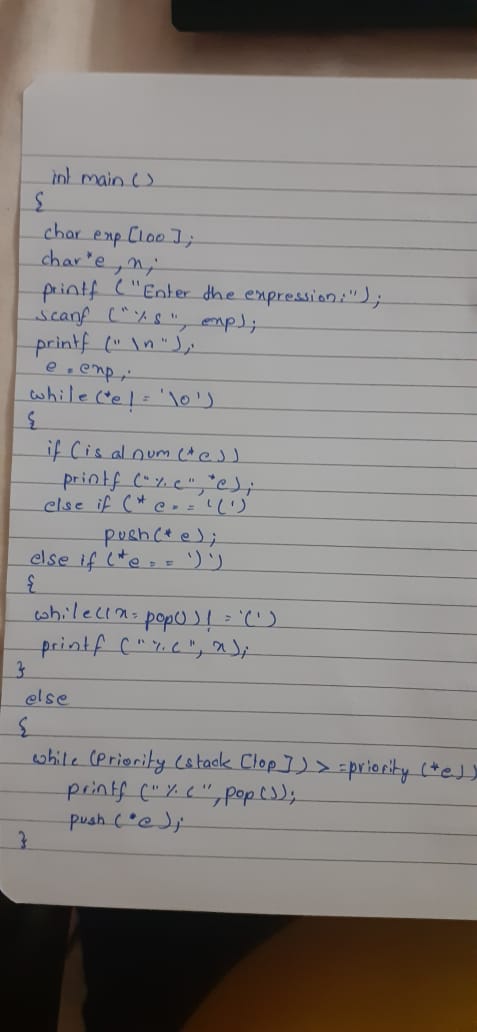 int main ()
{
char exp [100];
char *e, x;
printf ("Enter the expression:");
scanf ("%s", exp);
printf ("\n");
e = exp;
while (*e != '\0')
{
if (isalnum (*e))
printf ("%c", *e);
else if (*e == '(')
push (*e);
else if (*e == ')')
{
while ((x = pop()) != '(')
printf ("%c", x);
}
else
{
while (Priority (stack [top]) >= priority (*e))
printf ("%c", pop ());
push (*e);
}